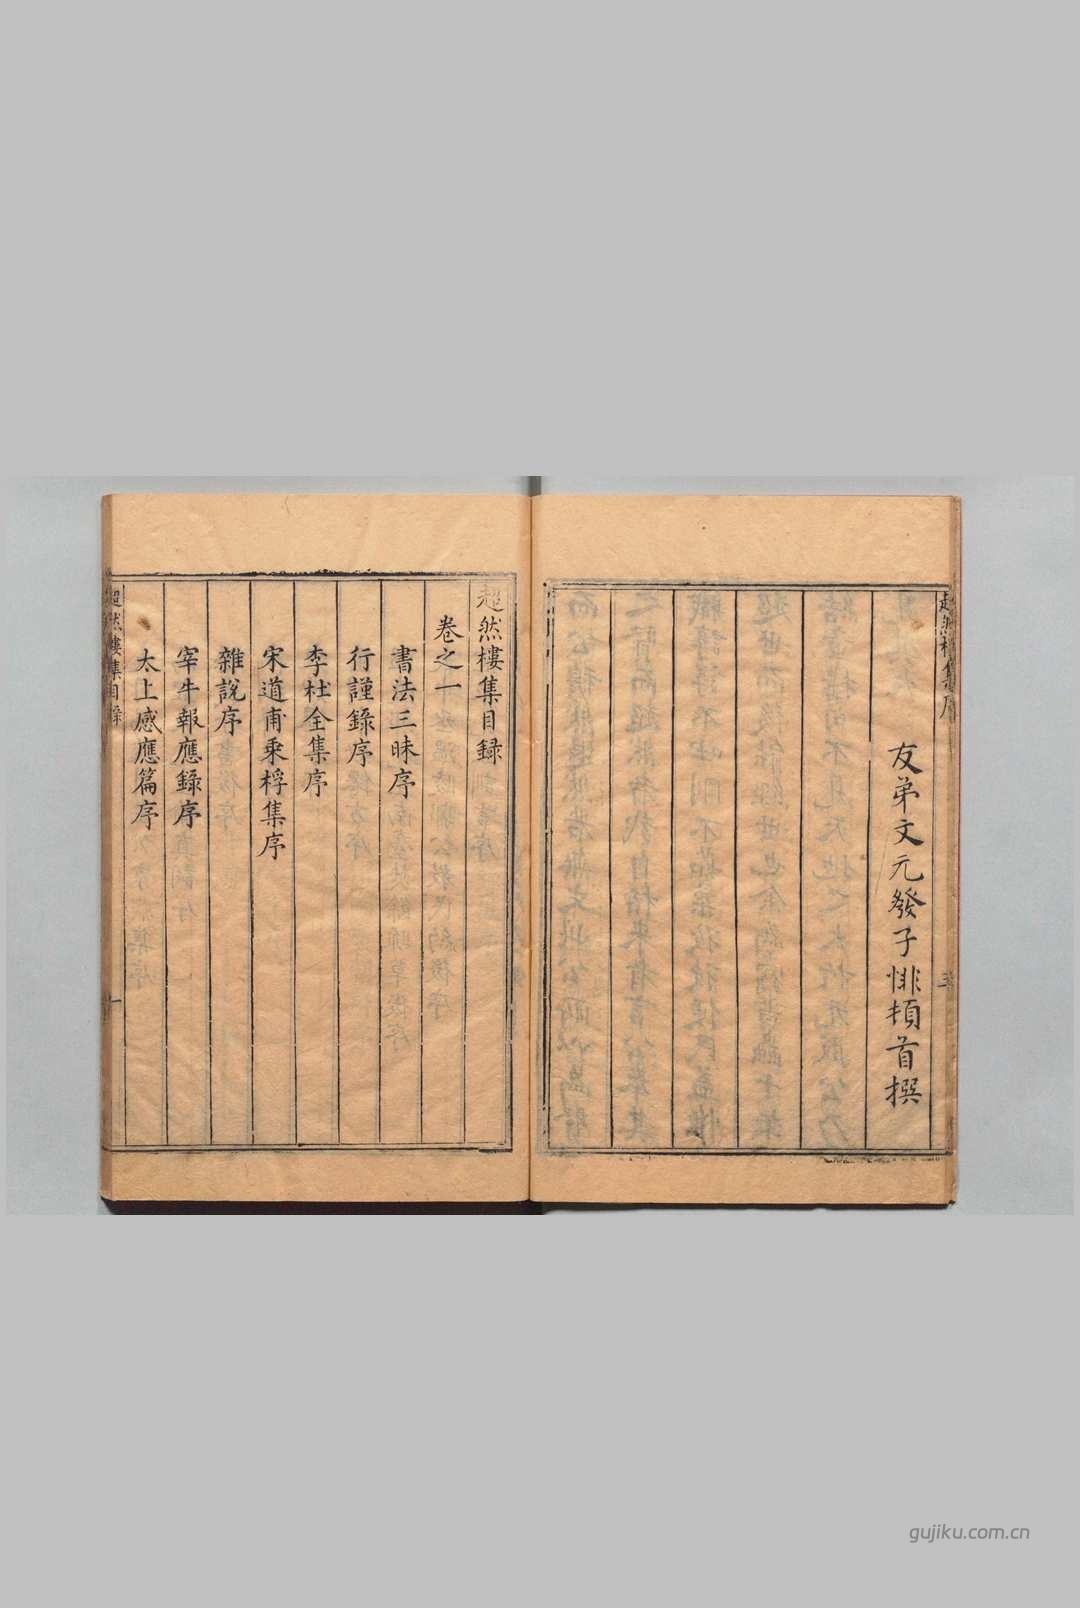 友弟文元發子悱頓首撰
超然樓集序
超然樓集目録
卷之一
書法三昧序
行謹錄序
李杜全集序
宋道甫乘桴集序
雜說序
宰牛報應錄序
太上感應篇序
超然樓集目錄
一
gujiku.com.cn